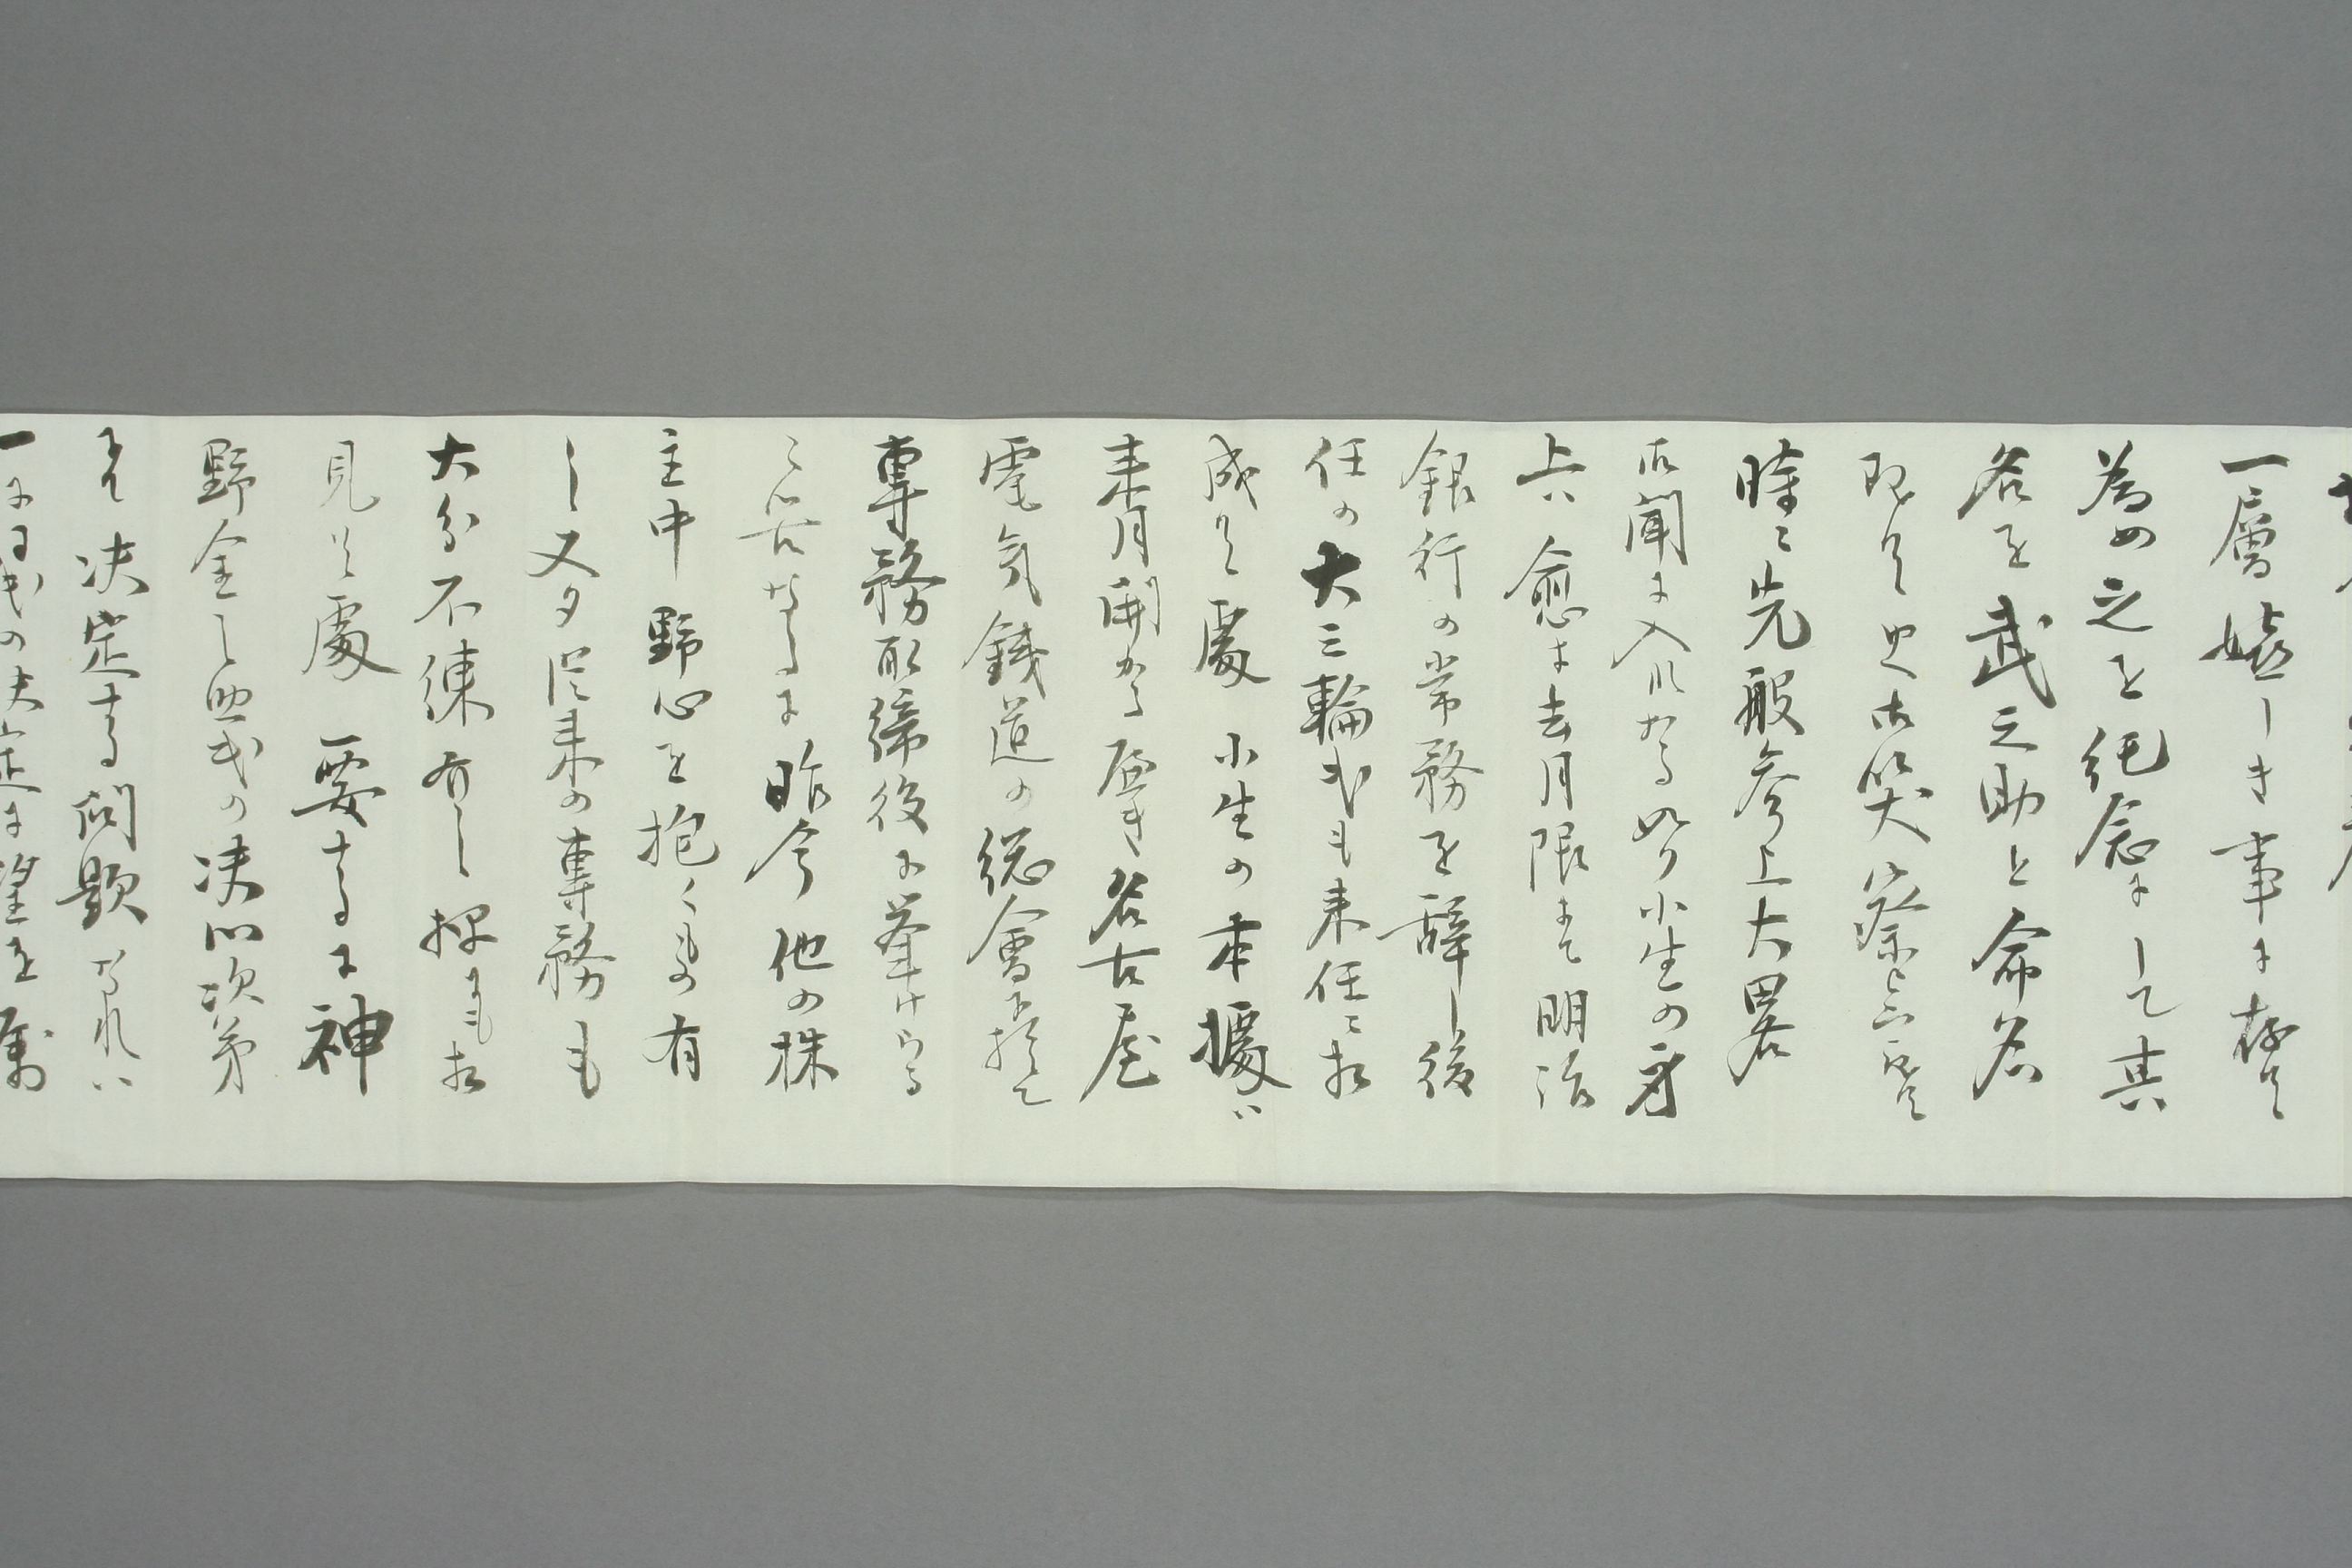 一層嬉しき事に存候
為め之を紀念にして其
名を武之助と命名
致候 御笑察
時に先般参上大畧
御聞に入れたる如く小生の身
上 愈々去月限にて明治
銀行の常務を辞し後
任の大三輪氏も来任に相
成候處 小生の本據ハ
来月開かる 名古屋
電気鉄道の総會に於て
専務取締役に挙けらる
ゝ筈なるに昨今他の株
主中野心を抱くもの有
し又タ従来の専務も
大分不練有し 様にも相
見え候處 要するに神
野金之助氏の决心次第
にて决定する問題なれハ
一に同氏の决定に望を属